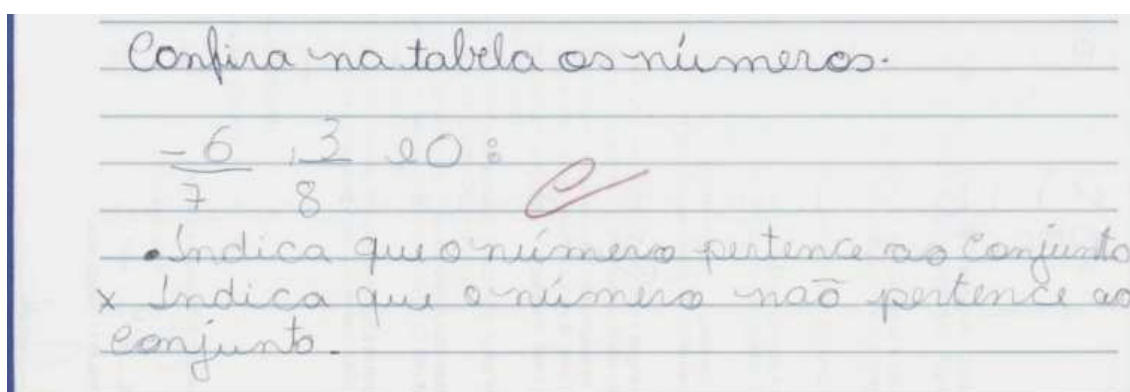 Confira na tabela os números.
-6/7, 3/8 e 0:
• Indica que o número pertence ao conjunto
x Indica que o número não pertence ao
conjunto.